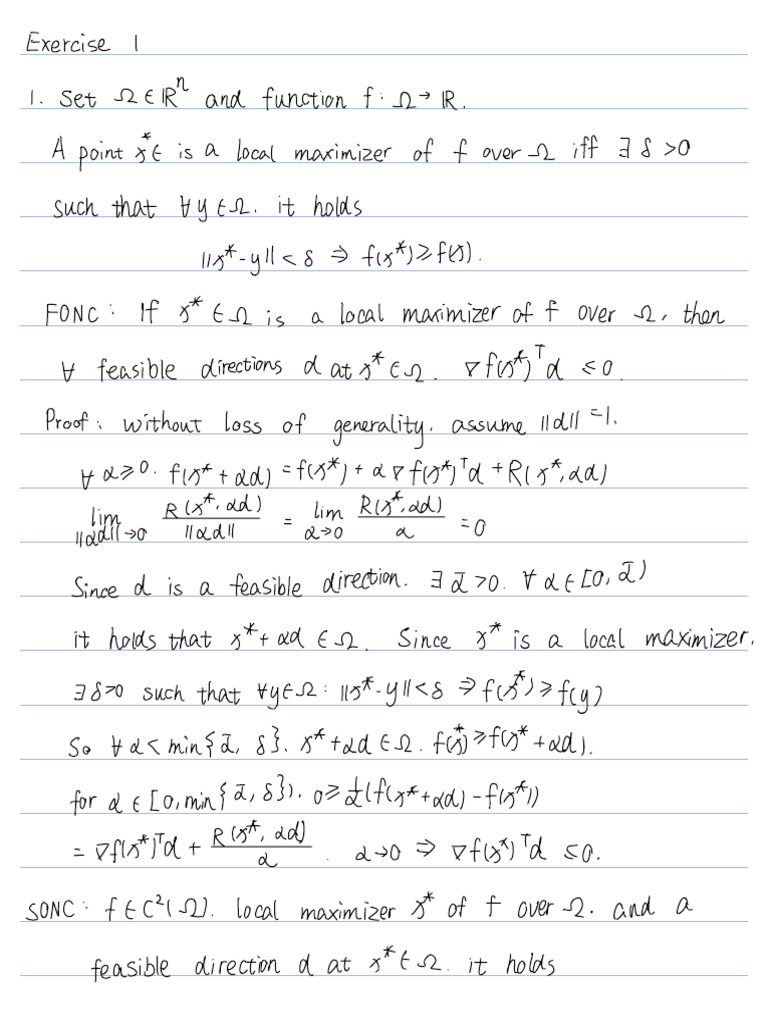 Exercise 1
1. Set Ω∈ℝⁿ and function f: Ω→ℝ.
A point x*∈ is a local maximizer of f over Ω iff ∃ δ >0
such that ∀y∈Ω. it holds
||x*-y|| < δ ⇒ f(x*)≥f(x).
FONC: If x* ∈Ω is a local maximizer of f over Ω, then
∀ feasible directions d at x*∈Ω. ∇f(x*)ᵀd ≤0.
Proof: without loss of generality. assume ||d||=1.
∀ α≥0. f(x*+αd) =f(x*)+α∇f(x*)ᵀd+R(x*,αd)
lim_{||αd||→0} R(x*,αd)/||αd|| = lim_{α→0} R(x*,αd)/α =0
Since d is a feasible direction. ∃ ᾱ>0. ∀ α∈[0,ᾱ)
it holds that x*+αd ∈Ω. Since x* is a local maximizer.
∃δ>0 such that ∀y∈Ω: ||x*-y||<δ ⇒f(x*)≥f(y)
So ∀α<min{ᾱ, δ}. x*+αd ∈Ω. f(x*)≥f(x*+αd).
for α∈[0,min{ᾱ,δ}). 0≥1/α(f(x*+αd)-f(x*))
= ∇f(x*)ᵀd + R(x*,αd)/α . α→0 ⇒ ∇f(x*)ᵀd ≤0.
SONC: f∈C²(Ω). local maximizer x* of f over Ω. and a
feasible direction d at x*∈Ω. it holds